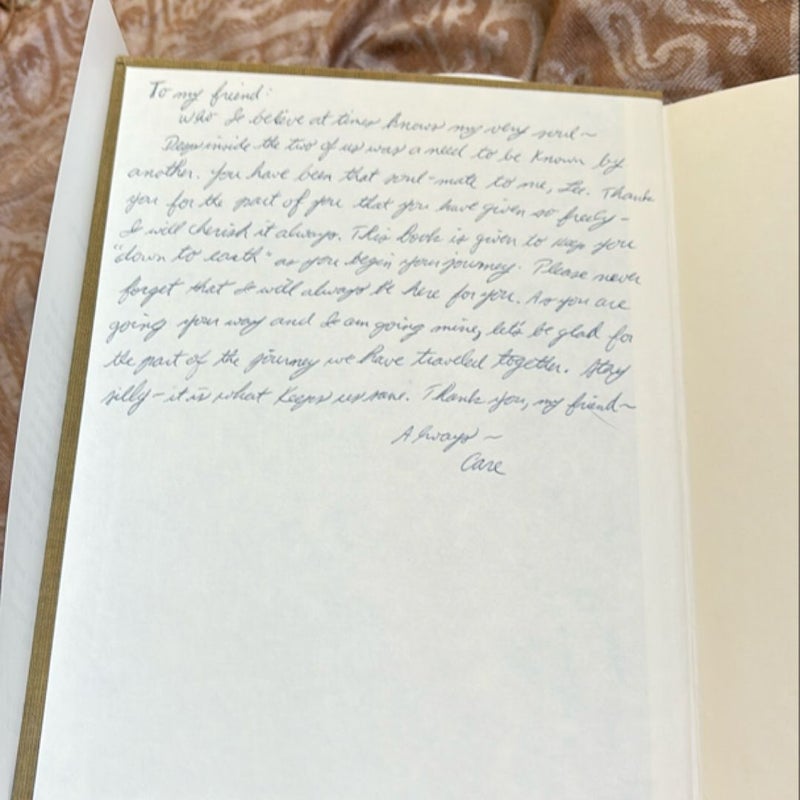 To my friend:
who I believe at times knows my very soul~
Deep inside the two of us was a need to be known by
another. You have been that soul-mate to me, Lee. Thank
you for the part of you that you have given so freely -
I will cherish it always. This Book is given to keep you
"down to earth" as you begin your journey. Please never
forget that I will always be here for you. As you are
going your way and I am going mine, let's be glad for
the part of the journey we have traveled together. Stay
silly - it is what Keeps us sane. Thank you, my friend~
Always ~
Care